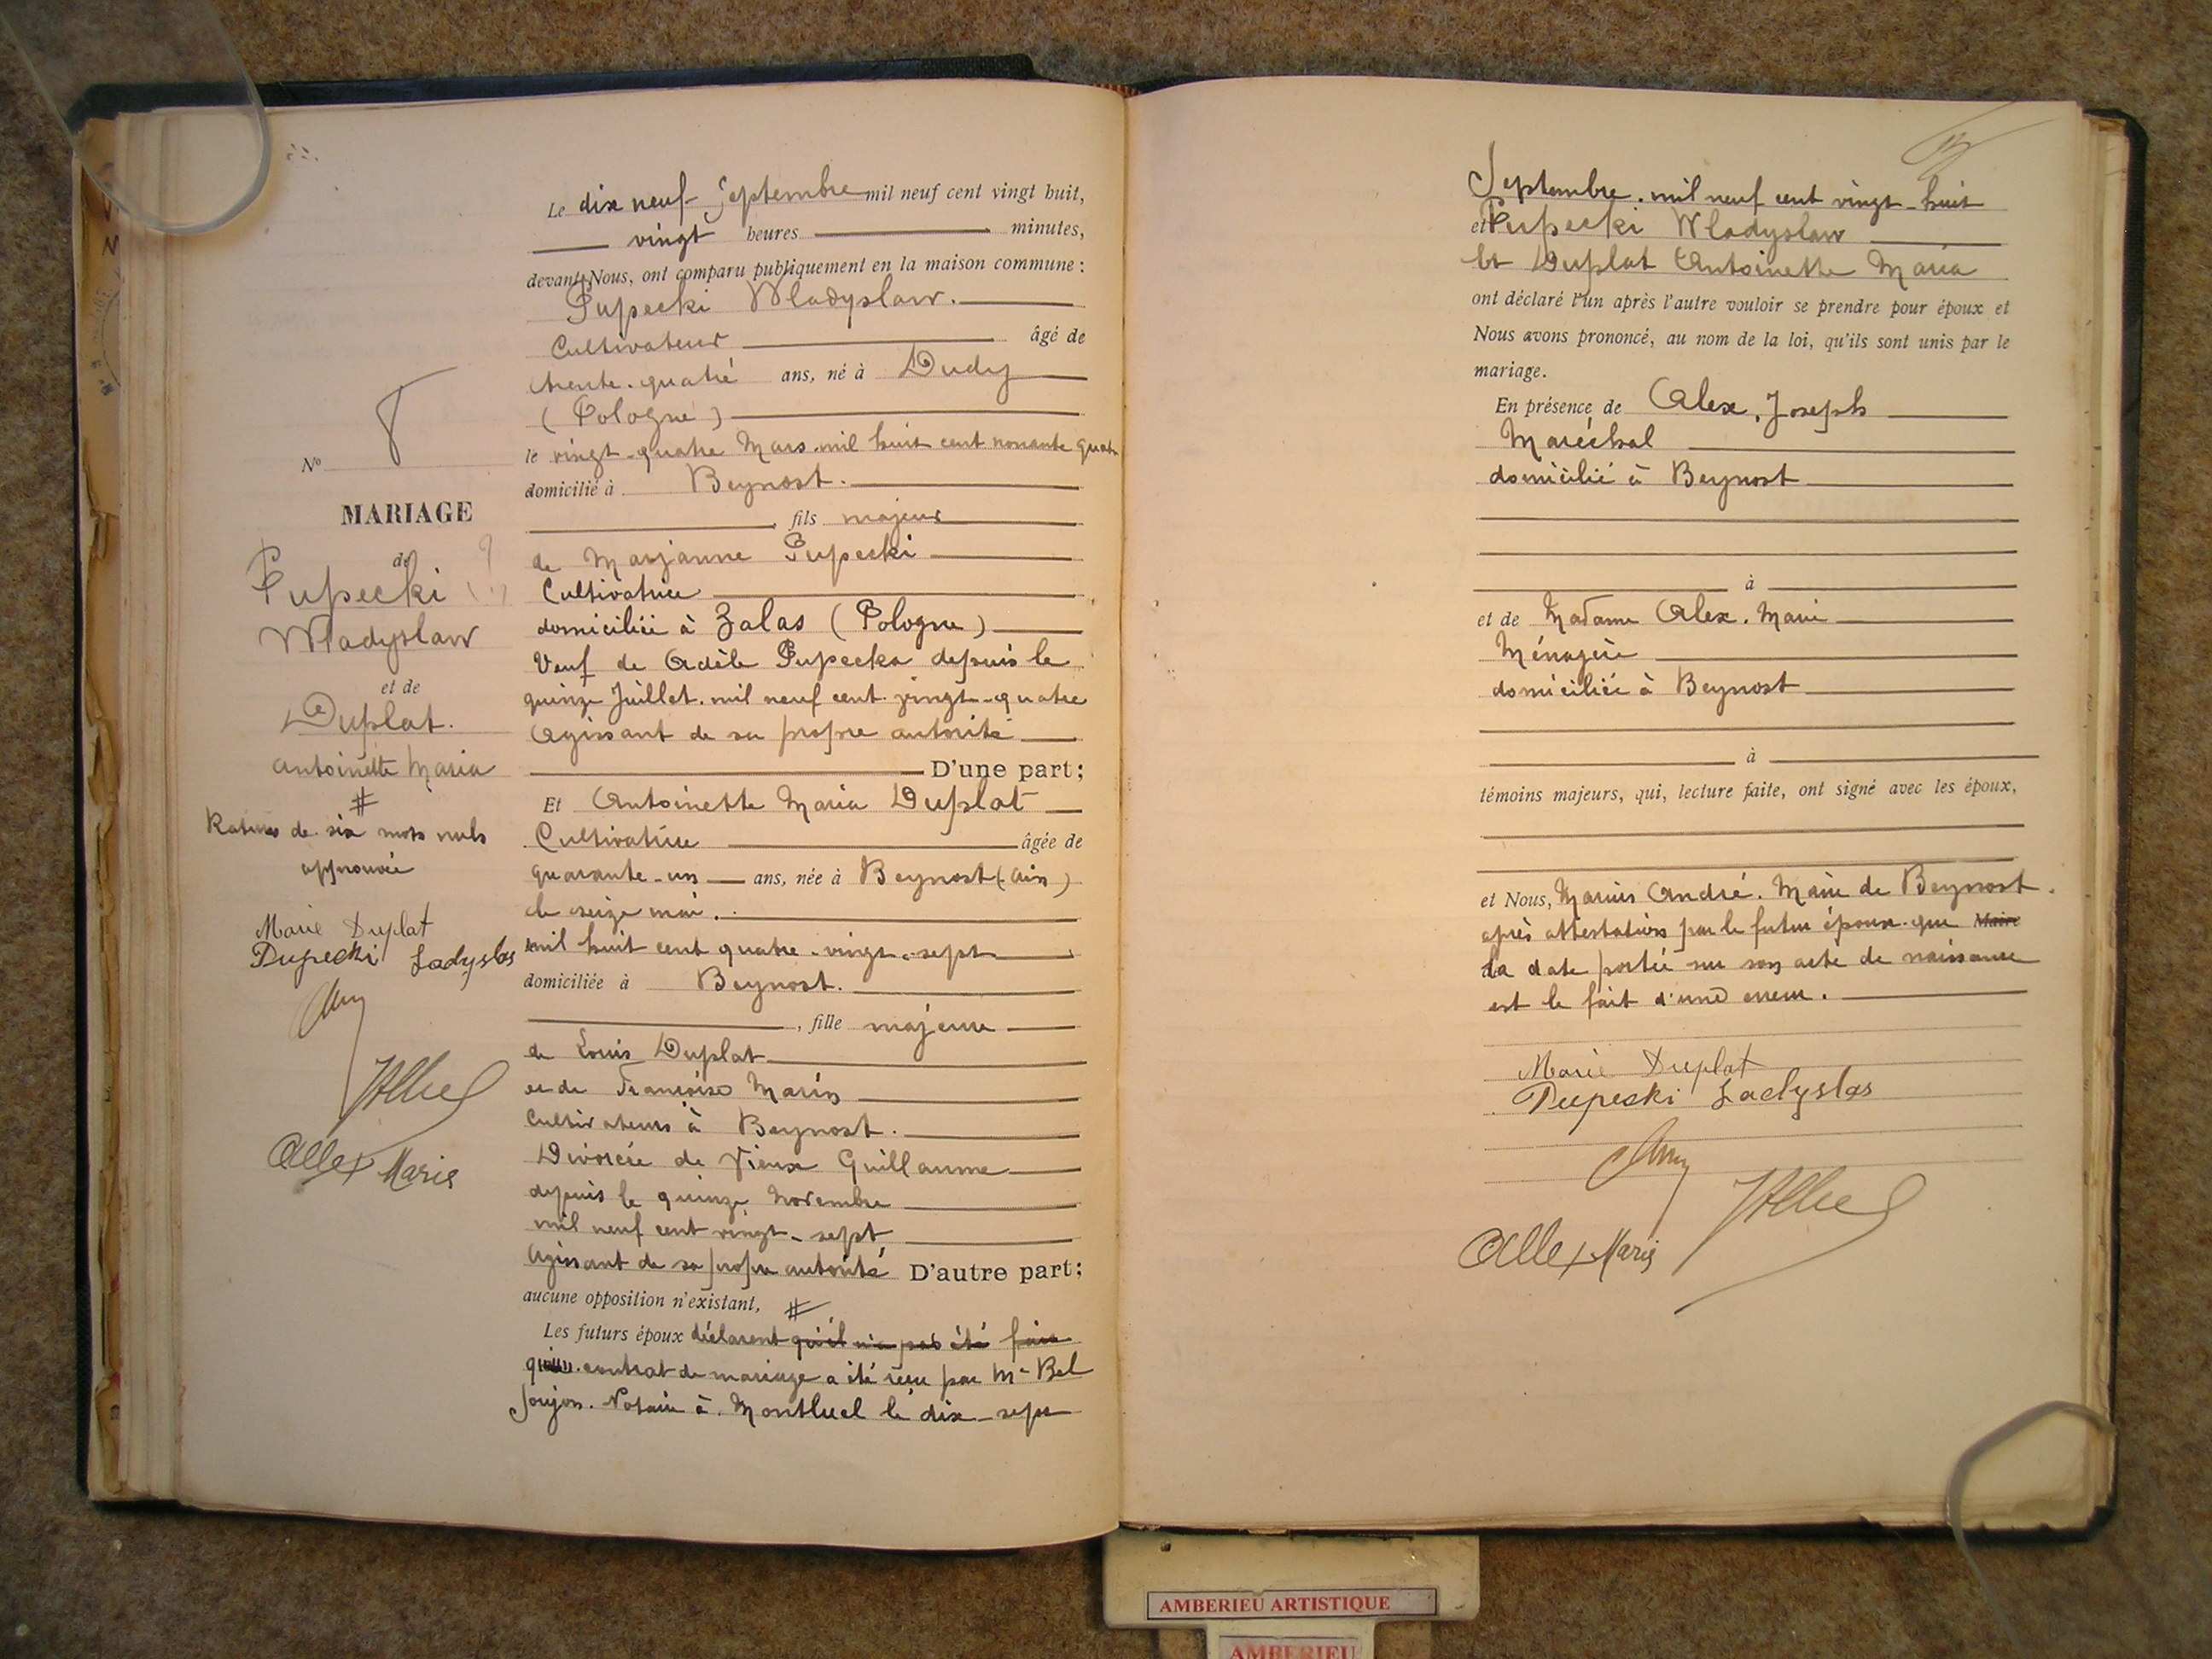 Le dix neuf Septembre mil neuf cent vingt huit,
vingt heures minutes,
devant Nous, ont comparu publiquement en la maison commune :
Pupecki Wladyslaw.
Cultivateur âgé de
trente-quatre ans, né à Dudy
(Pologne)
le vingt-quatre Mars mil huit cent nonante quatr
domicilié à Beynost.
, fils majeur
de Marjanne Pupecki
Cultivatrice
domiciliée à Zalas (Pologne)
Veuf de Adèle Pupecka depuis le
quinze Juillet mil neuf cent vingt-quatre
Agissant de sa propre autorité
D'une part ;
Et Antoinette Maria Duplat
Cultivatrice âgée de
quarante-un ans, née à Beynost (Ain)
le seize mai.
mil huit cent quatre-vingt-sept
domiciliée à Beynost.
, fille majeure
de Louis Duplat
et de Françoise Marin
Cultivateurs à Beynost.
Divorcée de Vieux Guillaume
depuis le quinze Novembre
mil neuf cent vingt-sept
Agissant de sa propre autorité D'autre part ;
aucune opposition n'existant, #
Les futurs époux déclarent qu'il n'a pas été fait
qu'un contrat de mariage a été reçu par Me Bel
Joujon. Notaire à Montluel le dix-sept
No 8
MARIAGE
de
Pupecki
Wladyslaw
et de
Duplat.
Antoinette Maria
#
Ratures de six mots nuls
approuvée
Marie Duplat
Pupecki Ladyslas
Allex Marie
Septembre mil neuf cent vingt-huit
et Pupecki Wladyslaw
et Duplat Antoinette Maria
ont déclaré l'un après l'autre vouloir se prendre pour époux et
Nous avons prononcé, au nom de la loi, qu'ils sont unis par le
mariage.
En présence de Alex, Joseph
Maréchal
domicilié à Beynost
à
et de Madame Alex. Marie
Ménagère
domiciliée à Beynost
à
témoins majeurs, qui, lecture faite, ont signé avec les époux,
et Nous, Marius André. Maire de Beynost.
après attestation par le futur époux que Maire
la date portée sur son acte de naissance
est le fait d'une erreur.
Marie Duplat
Pupecki Ladyslas
Allex Marie
AMBERIEU ARTISTIQUE
AMBERIEU